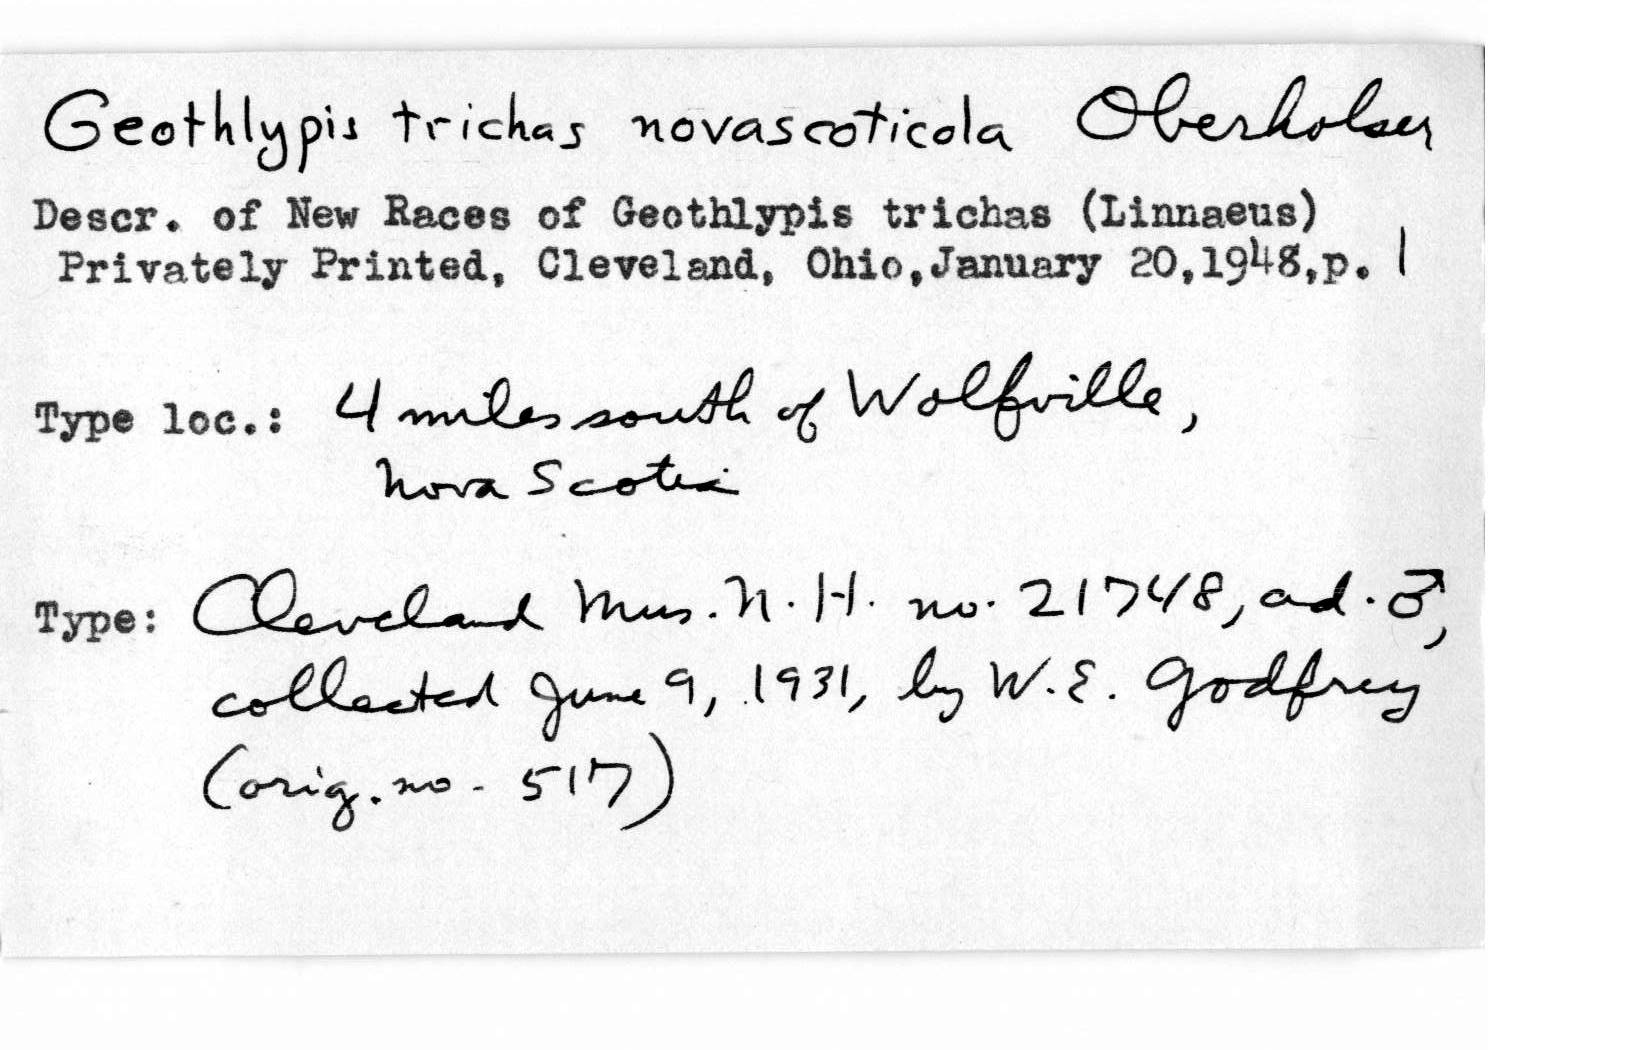 Geothlypis trichas novascoticola Oberholser
Descr. of New Races of Geothlypis trichas (Linnaeus)
Privately Printed, Cleveland, Ohio,January 20,1948,p. 1
Type loc.: 4 miles south of Wolfville,
Nova Scotia
Type: Cleveland Mus. N. H. no. 21748, ad. ♂,
collected June 9, 1931, by W. E. Godfrey
(orig. no. 517)